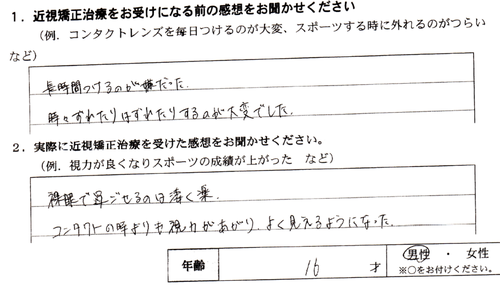 1．近視矯正治療をお受けになる前の感想をお聞かせください
（例．コンタクトレンズを毎日つけるのが大変、スポーツする時に外れるのがつらい
など）
長時間つけるのが嫌だった。
時々ずれたりはずれたりするのが大変でした。
2．実際に近視矯正治療を受けた感想をお聞かせください。
（例．視力が良くなりスポーツの成績が上がった　など）
裸眼で過ごせるのは凄く楽
コンタクトの時よりも視力があがり、よく見えるようになった。
年齢　16　才　男性　・　女性
※○をお付けください。